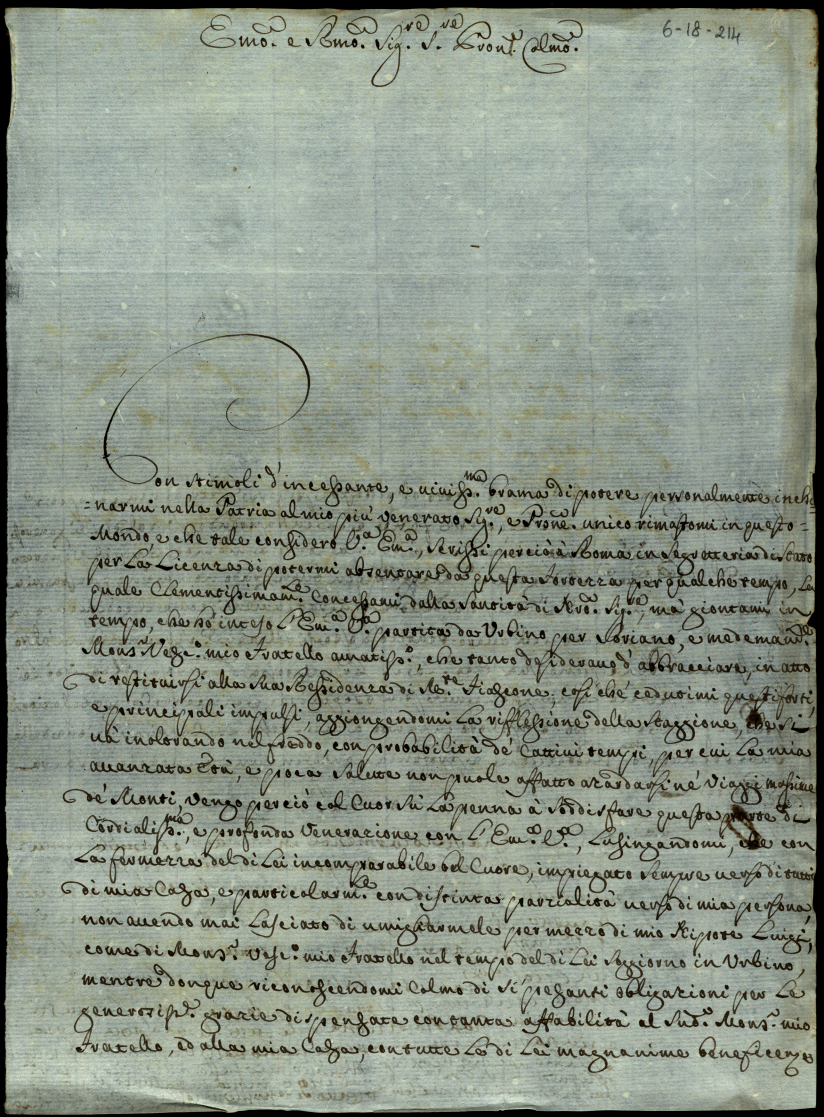 Emo. e Rmo. Sig.re S.re Pron. Colmo.
6-18-214
Con stimoli d'incessante, e viviss.ma brama di potere personalmente inchi=
=narmi nella Patria al mio più venerato Sig.re, e Prone. unico rimastomi in questo=
Mondo e che tale considero V.a Em.a, scrissi perciò à Roma in Segretteria di Stato
per La Licenza di potermi absentare da questa Fortezza per qualche tempo, La
quale Clementissimam.te Concessami dalla Santità di Nro. Sig.re, mà giontami in
tempo, che hò inteso L'Em.a V.a partita da Urbino per, e medemam.te
Mons.r Vesc.o mio Fratello amatiss.o, che tanto desideravo d'abbracciare, in atto
di restituirsi alla sua Ressidenza di M.te Fiascone; così che cadutimi questi forti,
e principali impulsi, aggiongendomi La rifflessione della Staggione, che si
và inoltrando nel freddo, con probabilità de' Cattivi tempi, per cui La mia
avanzata Età, e poca salute non puole affatto azardarsi né Viaggi massime
de' Monti, vengo perciò col Cuor sù La penna à soddisfare questa parte di
Cordialiss.ma, e profonda Venerazione con L'Em.a V.a, Lusingandomi, che con
La fermezza del di Lei incomparabile bel Cuore, impiegato sempre verso di tutti
di mia Casa, e particolarm.te con distinta parzialità verso di mia persona,
non avendo mai Lasciato di umigliarmele per mezzo di mio Nipote Luigi,
come di Mons.r Vesc.o mio Fratello nel tempo del di Lui soggiorno in Urbino,
mentre donque riconoscendomi Colmo di sì pesanti obligazioni per Le
generosiss.e grazie dispensate con tanta affabilità al Sud.o Mons.r mio
Fratello, ed alla mia Casa, con tutte Le di Lei magnanime beneficenze